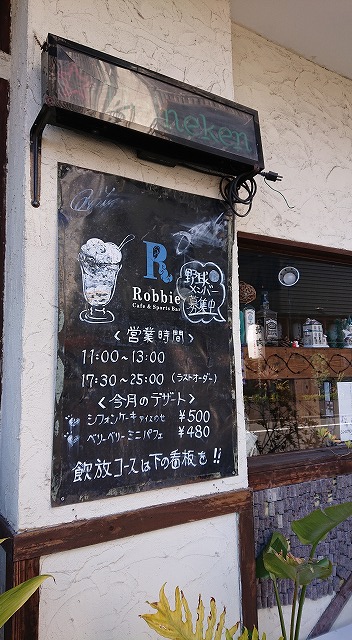 neken
R
Robbie
Cafe & Sports Bar
野球
メンバー
募集中
〈営業時間〉
11:00~13:00
17:30~25:00 (ラストオーダー)
〈今月のデザート〉
シフォンケーキ アイスのせ ¥500
ベリーベリーミニパフェ ¥480
飲放コースは下の看板を!!